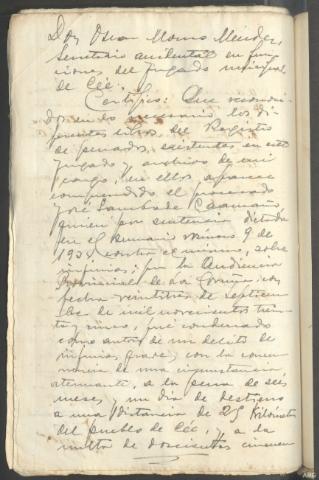 Don Oscar Mouro Mendez,
Secretario accidental en fun-
ciones del Juzgado municipal
de Cée.
Certifico: Que recono
dos en lo necesario los di-
ferentes libros del Registro
de penados, existentes en este
Juzgado y archivo de mi
cargo, en ellos aparece
comprendido el procesado
José Lambade Caamaño
quien por sentencia dictada
en el sumario número 9 de
contra el mismo, sobre
injurias; por la Audiencia
Provincial de La Coruña, con
fecha veintitres de septiem-
bre de mil novecientos trein-
ta y cinco, fué condenado
como autor de un delito de
injurias graves, con la concu-
rrencia de una circunstancia,
atenuante, a la pena de seis
meses y un dia de destierro
a una distancia de 25 kilometros
del pueblo de Cée, y a la
multa de doscientas cincuen